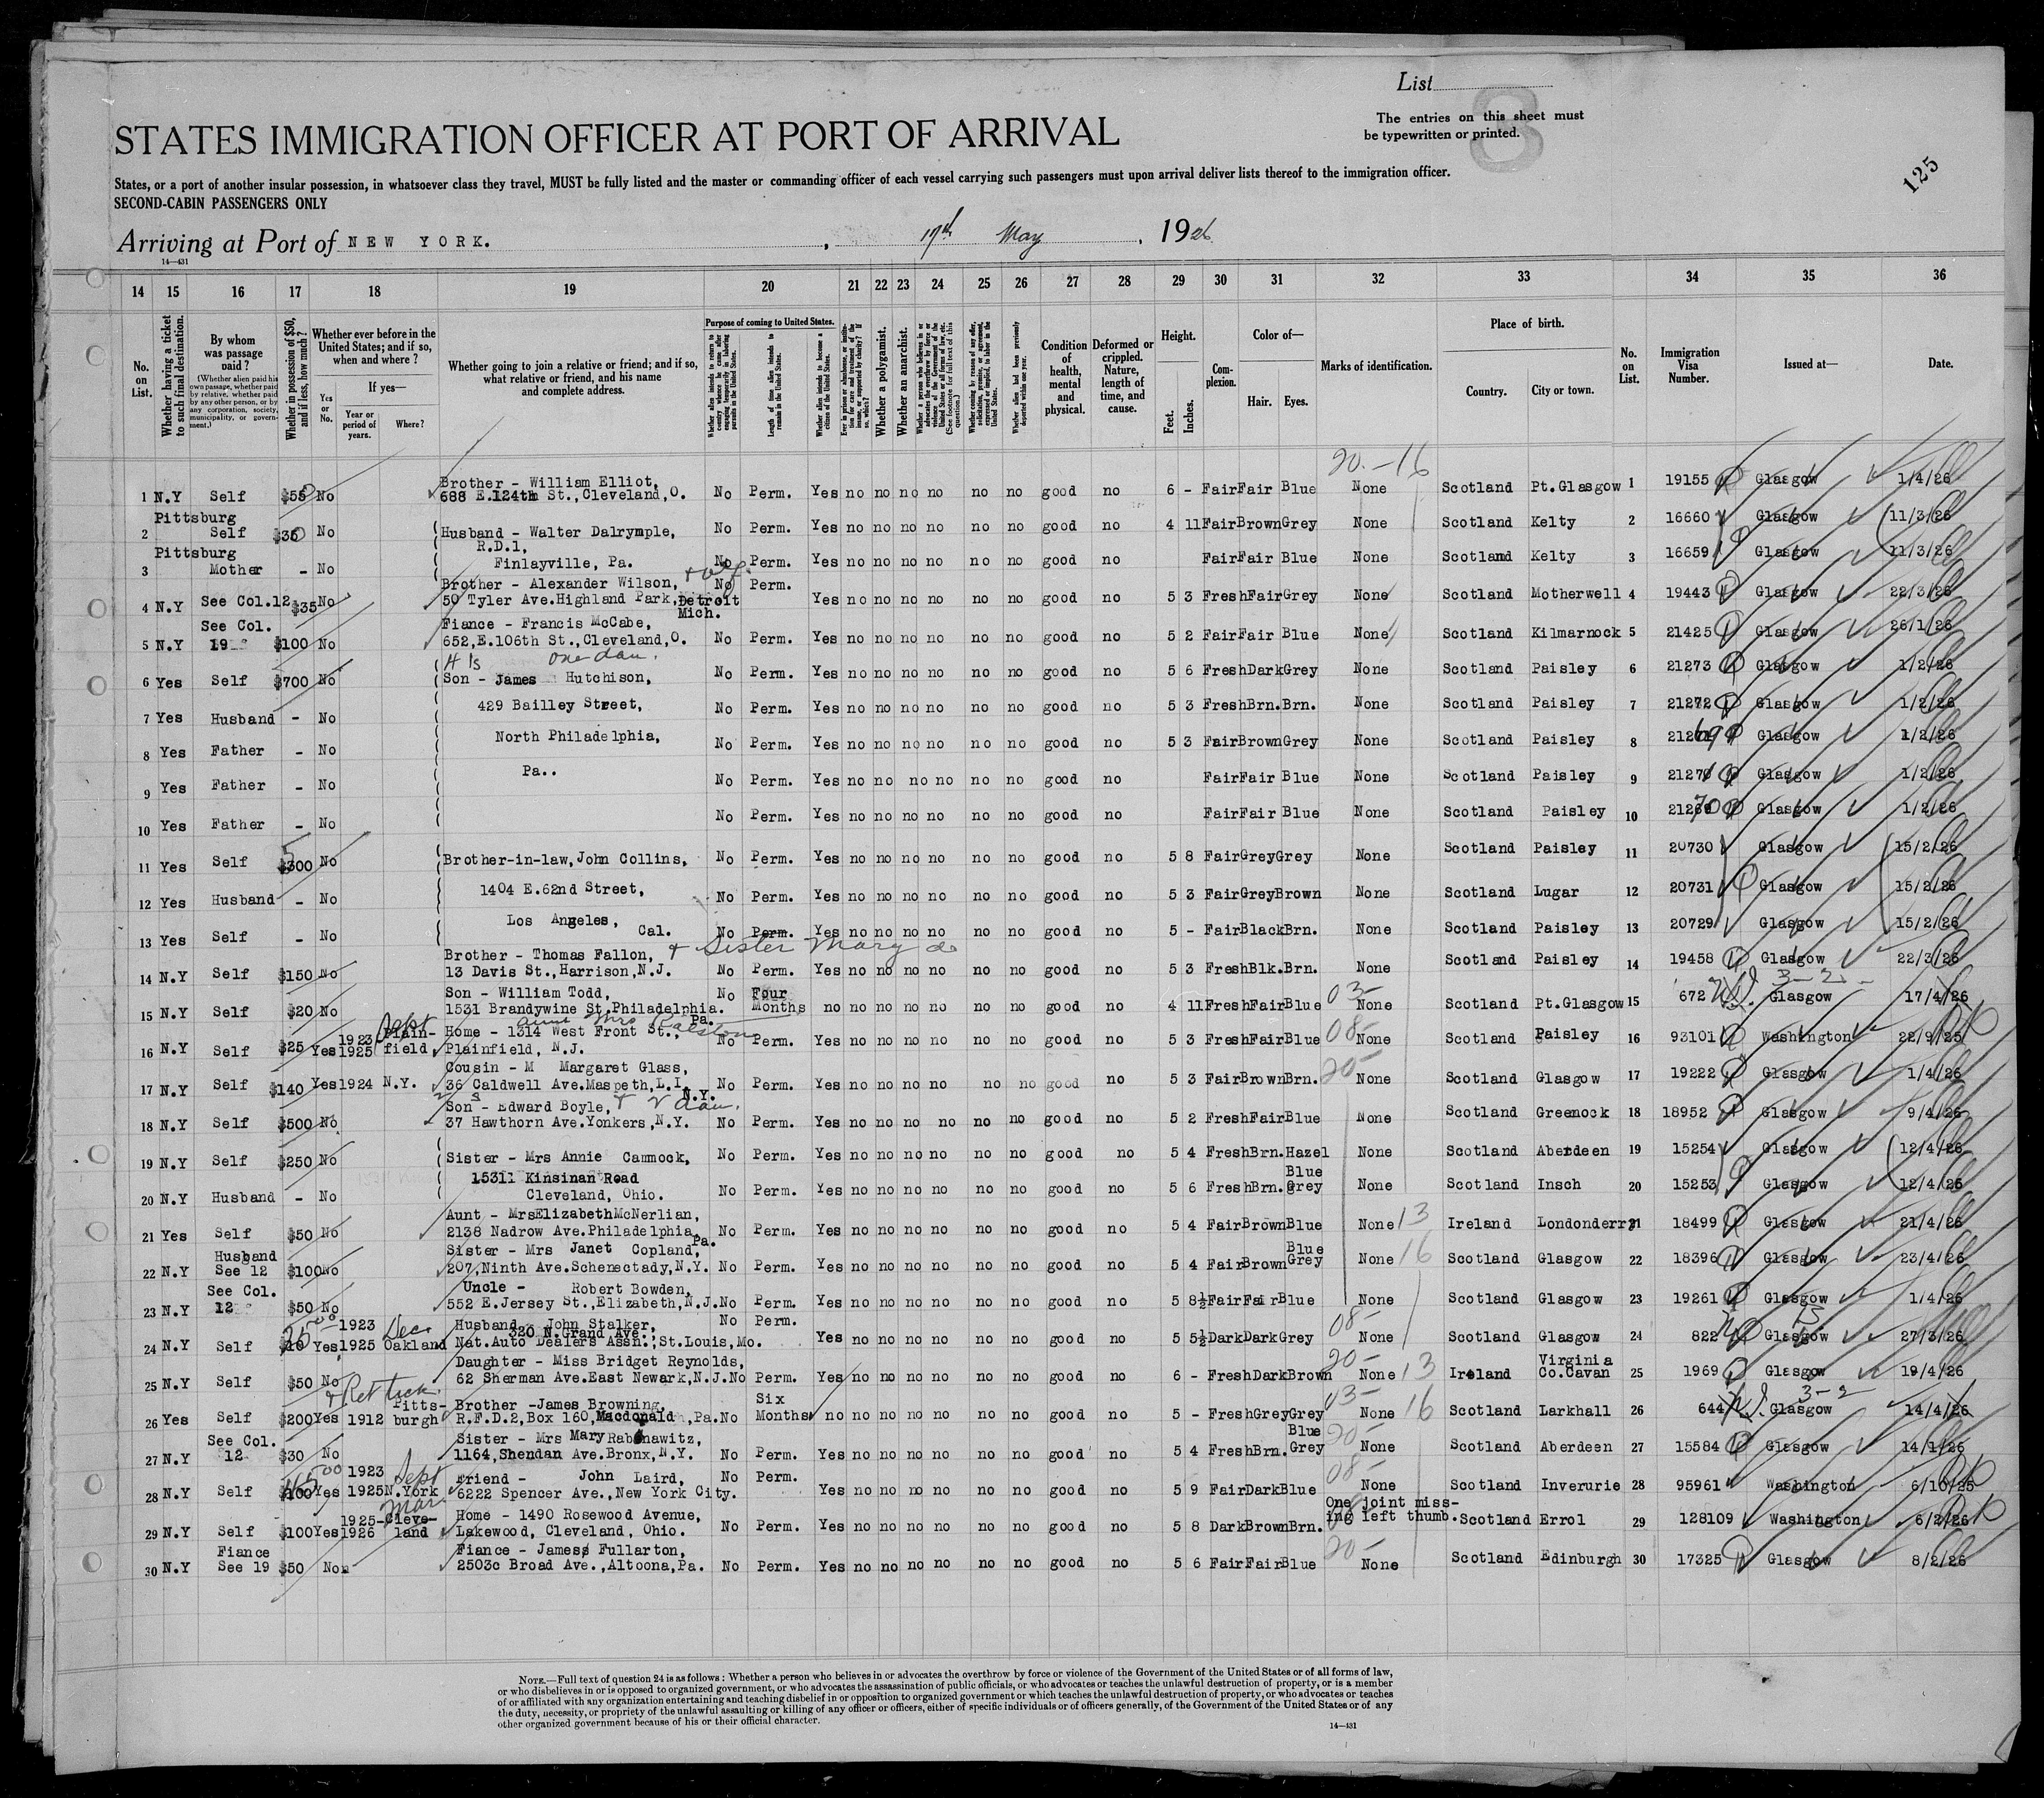 List
8
The entries on this sheet must
be typewritten or printed.
STATES IMMIGRATION OFFICER AT PORT OF ARRIVAL
125
States, or a port of another insular possession, in whatsoever class they travel, MUST be fully listed and the master or commanding officer of each vessel carrying such passengers must upon arrival deliver lists thereof to the immigration officer.
SECOND-CABIN PASSENGERS ONLY
Arriving at Port of NEW YORK. , 17th May , 1926
14—431
14 15 16 17 18 19 20 21 22 23 24 25 26 27 28 29 30 31 32 33 34 35 36
No. on List.
Whether having a ticket to such final destination.
By whom was passage paid?
(Whether alien paid his own passage, whether paid by relative, whether paid by any other person, or by any corporation, society, municipality, or government.)
Whether in possession of $50, and if less, how much?
Whether ever before in the United States; and if so, when and where?
If yes—
Yes or No.
Year or period of years.
Where?
Whether going to join a relative or friend; and if so, what relative or friend, and his name and complete address.
Purpose of coming to United States.
Whether alien intends to return to country whence he came after engaging temporarily in laboring pursuits in the United States.
Length of time alien intends to remain in the United States.
Whether alien intends to become a citizen of the United States.
Ever in prison or almshouse, or institution for care and treatment of the insane, or supported by charity? If so, which?
Whether a polygamist.
Whether an anarchist.
Whether a person who believes in or advocates the overthrow by force or violence of the Government of the United States or all forms of law, etc. (See footnote for full text of this question.)
Whether coming by reason of any offer, solicitation, promise, or agreement, expressed or implied, to labor in the United States.
Whether alien had been previously deported within one year.
Condition of health, mental and physical.
Deformed or crippled. Nature, length of time, and cause.
Height.
Feet. Inches.
Complexion.
Color of—
Hair. Eyes.
Marks of identification.
Place of birth.
Country. City or town.
No. on List.
Immigration Visa Number.
Issued at—
Date.
20.-16
Brother - William Elliot,
1 N.Y Self $55 No 688 E.124th St.,Cleveland,O. No Perm. Yes no no no no no no good no 6 - Fair Fair Blue None Scotland Pt.Glasgow 1 19155 Glasgow 1/4/26
Pittsburg
2 Self $35 No Husband - Walter Dalrymple, No Perm. Yes no no no no no no good no 4 11 Fair Brown Grey None Scotland Kelty 2 16660 Glasgow 11/3/26
R.D.1,
Pittsburg
3 Mother - No Finlayville, Pa. No Perm. Yes no no no no no no good no Fair Fair Blue None Scotland Kelty 3 16659 Glasgow 11/3/26
Brother - Alexander Wilson, No Perm.
4 N.Y See Col.12 $35 No 50 Tyler Ave.Highland Park,Detroit Yes no no no no no no good no 5 3 Fresh Fair Grey None Scotland Motherwell 4 19443 Glasgow 22/3/26
Mich.
See Col. Fiance - Francis McCabe,
5 N.Y 19 $100 No 652,E.106th St.,Cleveland,O. No Perm. Yes no no no no no no good no 5 2 Fair Fair Blue None Scotland Kilmarnock 5 21425 Glasgow 26/1/26
one dau.
6 Yes Self $700 No Son - James Hutchison, No Perm. Yes no no no no no no good no 5 6 Fresh Dark Grey None Scotland Paisley 6 21273 Glasgow 1/2/26
7 Yes Husband - No 429 Bailley Street, No Perm. Yes no no no no no no good no 5 3 Fresh Brn. Brn. None Scotland Paisley 7 21272 Glasgow 1/2/26
8 Yes Father - No North Philadelphia, No Perm. Yes no no no no no no good no 5 3 Fair Brown Grey None Scotland Paisley 8 Glasgow 1/2/26
9 Yes Father - No Pa.. No Perm. Yes no no no no no no good no Fair Fair Blue None Scotland Paisley 9 Glasgow 1/2/26
10 Yes Father - No No Perm. Yes no no no no no no good no Fair Fair Blue None Scotland Paisley 10 Glasgow 1/2/26
11 Yes Self $300 No Brother-in-law,John Collins, No Perm. Yes no no no no no no good no 5 8 Fair Grey Grey None Scotland Paisley 11 20730 Glasgow 15/2/26
12 Yes Husband - No 1404 E.62nd Street, No Perm. Yes no no no no no no good no 5 3 Fair Grey Brown None Scotland Lugar 12 20731 Glasgow 15/2/26
Los Angeles,
13 Yes Self - No Cal. No Perm. Yes no no no no no no good no 5 - Fair Black Brn. None Scotland Paisley 13 20729 Glasgow 15/2/26
Brother - Thomas Fallon, + Sister Mary do
14 N.Y Self $150 No 13 Davis St.,Harrison,N.J. No Perm. Yes no no no no no no good no 5 3 Fresh Blk. Brn. None Scotland Paisley 14 19458 Glasgow 22/3/26
Son - William Todd, No Four 03- 3-2
15 N.Y Self $20 No 1531 Brandywine St.Philadelphia. Months no no no no no no no good no 4 11 Fresh Fair Blue None Scotland Pt.Glasgow 15 672 Glasgow 17/4/26
Pa.
1923 Sept Plain- Home - 1314 West Front St., aunt Mrs Ralston 08-
16 N.Y Self $25 Yes 1925 field. Plainfield, N.J. No Perm. Yes no no no no no no good no 5 3 Fresh Fair Blue None Scotland Paisley 16 93101 Washington 22/9/25
Cousin - M Margaret Glass, 20-
17 N.Y Self $140 Yes 1924 N.Y. 36 Caldwell Ave.Maspeth,L.I. No Perm. Yes no no no no no no good no 5 3 Fair Brown Brn. None Scotland Glasgow 17 19222 Glasgow 1/4/26
N.Y.
Son - Edward Boyle, + 2 dau.
18 N.Y Self $500 No 37 Hawthorn Ave.Yonkers,N.Y. No Perm. Yes no no no no no no good no 5 2 Fresh Fair Blue None Scotland Greenock 18 18952 Glasgow 9/4/26
19 N.Y Self $250 No Sister - Mrs Annie Cammock, No Perm. Yes no no no no no no good no 5 4 Fresh Brn. Hazel None Scotland Aberdeen 19 15254 Glasgow 12/4/26
15311 Kinsinan Road Blue
20 N.Y Husband - No Cleveland, Ohio. No Perm. Yes no no no no no no good no 5 6 Fresh Brn. Grey None Scotland Insch 20 15253 Glasgow 12/4/26
Aunt - Mrs Elizabeth McNerlian,
21 Yes Self $50 No 2138 Nadrow Ave.Philadelphia, No Perm. Yes no no no no no no good no 5 4 Fair Brown Blue None 13 Ireland Londonderry 21 18499 Glasgow 21/4/26
Pa.
Husband Sister - Mrs Janet Copland, Blue
22 N.Y See 12 $100 No 207,Ninth Ave.Schenectady,N.Y. No Perm. Yes no no no no no no good no 5 4 Fair Brown Grey None 16 Scotland Glasgow 22 18396 Glasgow 23/4/26
See Col. Uncle - Robert Bowden,
23 N.Y 12 $50 No 552 E.Jersey St.,Elizabeth,N.J. No Perm. Yes no no no no no no good no 5 8½ Fair Fair Blue None Scotland Glasgow 23 19261 Glasgow 1/4/26
1923 Dec. Husband - John Stalker, No Perm. 08-
320 N.Grand Ave.,
24 N.Y Self $10 Yes 1925 Oakland Nat.Auto Dealers Assn.,St.Louis,Mo. Yes no no no no no no good no 5 5½ Dark Dark Grey None Scotland Glasgow 24 822 Glasgow 27/3/26
Daughter - Miss Bridget Reynolds, 20- Virginia
25 N.Y Self $50 No 62 Sherman Ave.East Newark,N.J. No Perm. Yes no no no no no no good no 6 - Fresh Dark Brown None 13 Ireland Co.Cavan 25 1969 Glasgow 19/4/26
+ Ret tick. Pitts- Brother -James Browning, Six 03- 3-2
26 Yes Self $200 Yes 1912 burgh R.F.D.2,Box 160,Macdonald,Pa. No Months no no no no no no no good no 5 - Fresh Grey Grey None 16 Scotland Larkhall 26 644 Glasgow 14/4/26
See Col. Sister - Mrs Mary Rabanawitz, Blue 20-
27 N.Y 12 $30 No 1164,Shendan Ave.Bronx,N.Y. No Perm. Yes no no no no no no good no 5 4 Fresh Brn. Grey None Scotland Aberdeen 27 15584 Glasgow 14/1/26
1923 Sept Friend - John Laird, No Perm. 08-
28 N.Y Self $100 Yes 1925 N.York 6222 Spencer Ave.,New York City. Yes no no no no no no good no 5 9 Fair Dark Blue None Scotland Inverurie 28 95961 Washington 6/10/25
Mar. One joint miss-
1925- Cleve- Home - 1490 Rosewood Avenue, ing left thumb.
29 N.Y Self $100 Yes 1926 land Lakewood, Cleveland, Ohio. No Perm. Yes no no no no no no good no 5 8 Dark Brown Brn. Scotland Errol 29 128109 Washington 6/2/26
Fiance Fiance - James Fullarton, 20-
30 N.Y See 19 $50 No 2503c Broad Ave.,Altoona,Pa. No Perm. Yes no no no no no no good no 5 6 Fair Fair Blue None Scotland Edinburgh 30 17325 Glasgow 8/2/26
NOTE.—Full text of question 24 is as follows: Whether a person who believes in or advocates the overthrow by force or violence of the Government of the United States or of all forms of law,
or who disbelieves in or is opposed to organized government, or who advocates the assassination of public officials, or who advocates or teaches the unlawful destruction of property, or is a member
of or affiliated with any organization entertaining and teaching disbelief in or opposition to organized government or which teaches the unlawful destruction of property, or who advocates or teaches
the duty, necessity, or propriety of the unlawful assaulting or killing of any officer or officers, either of specific individuals or of officers generally, of the Government of the United States or of any
other organized government because of his or their official character.
14—431